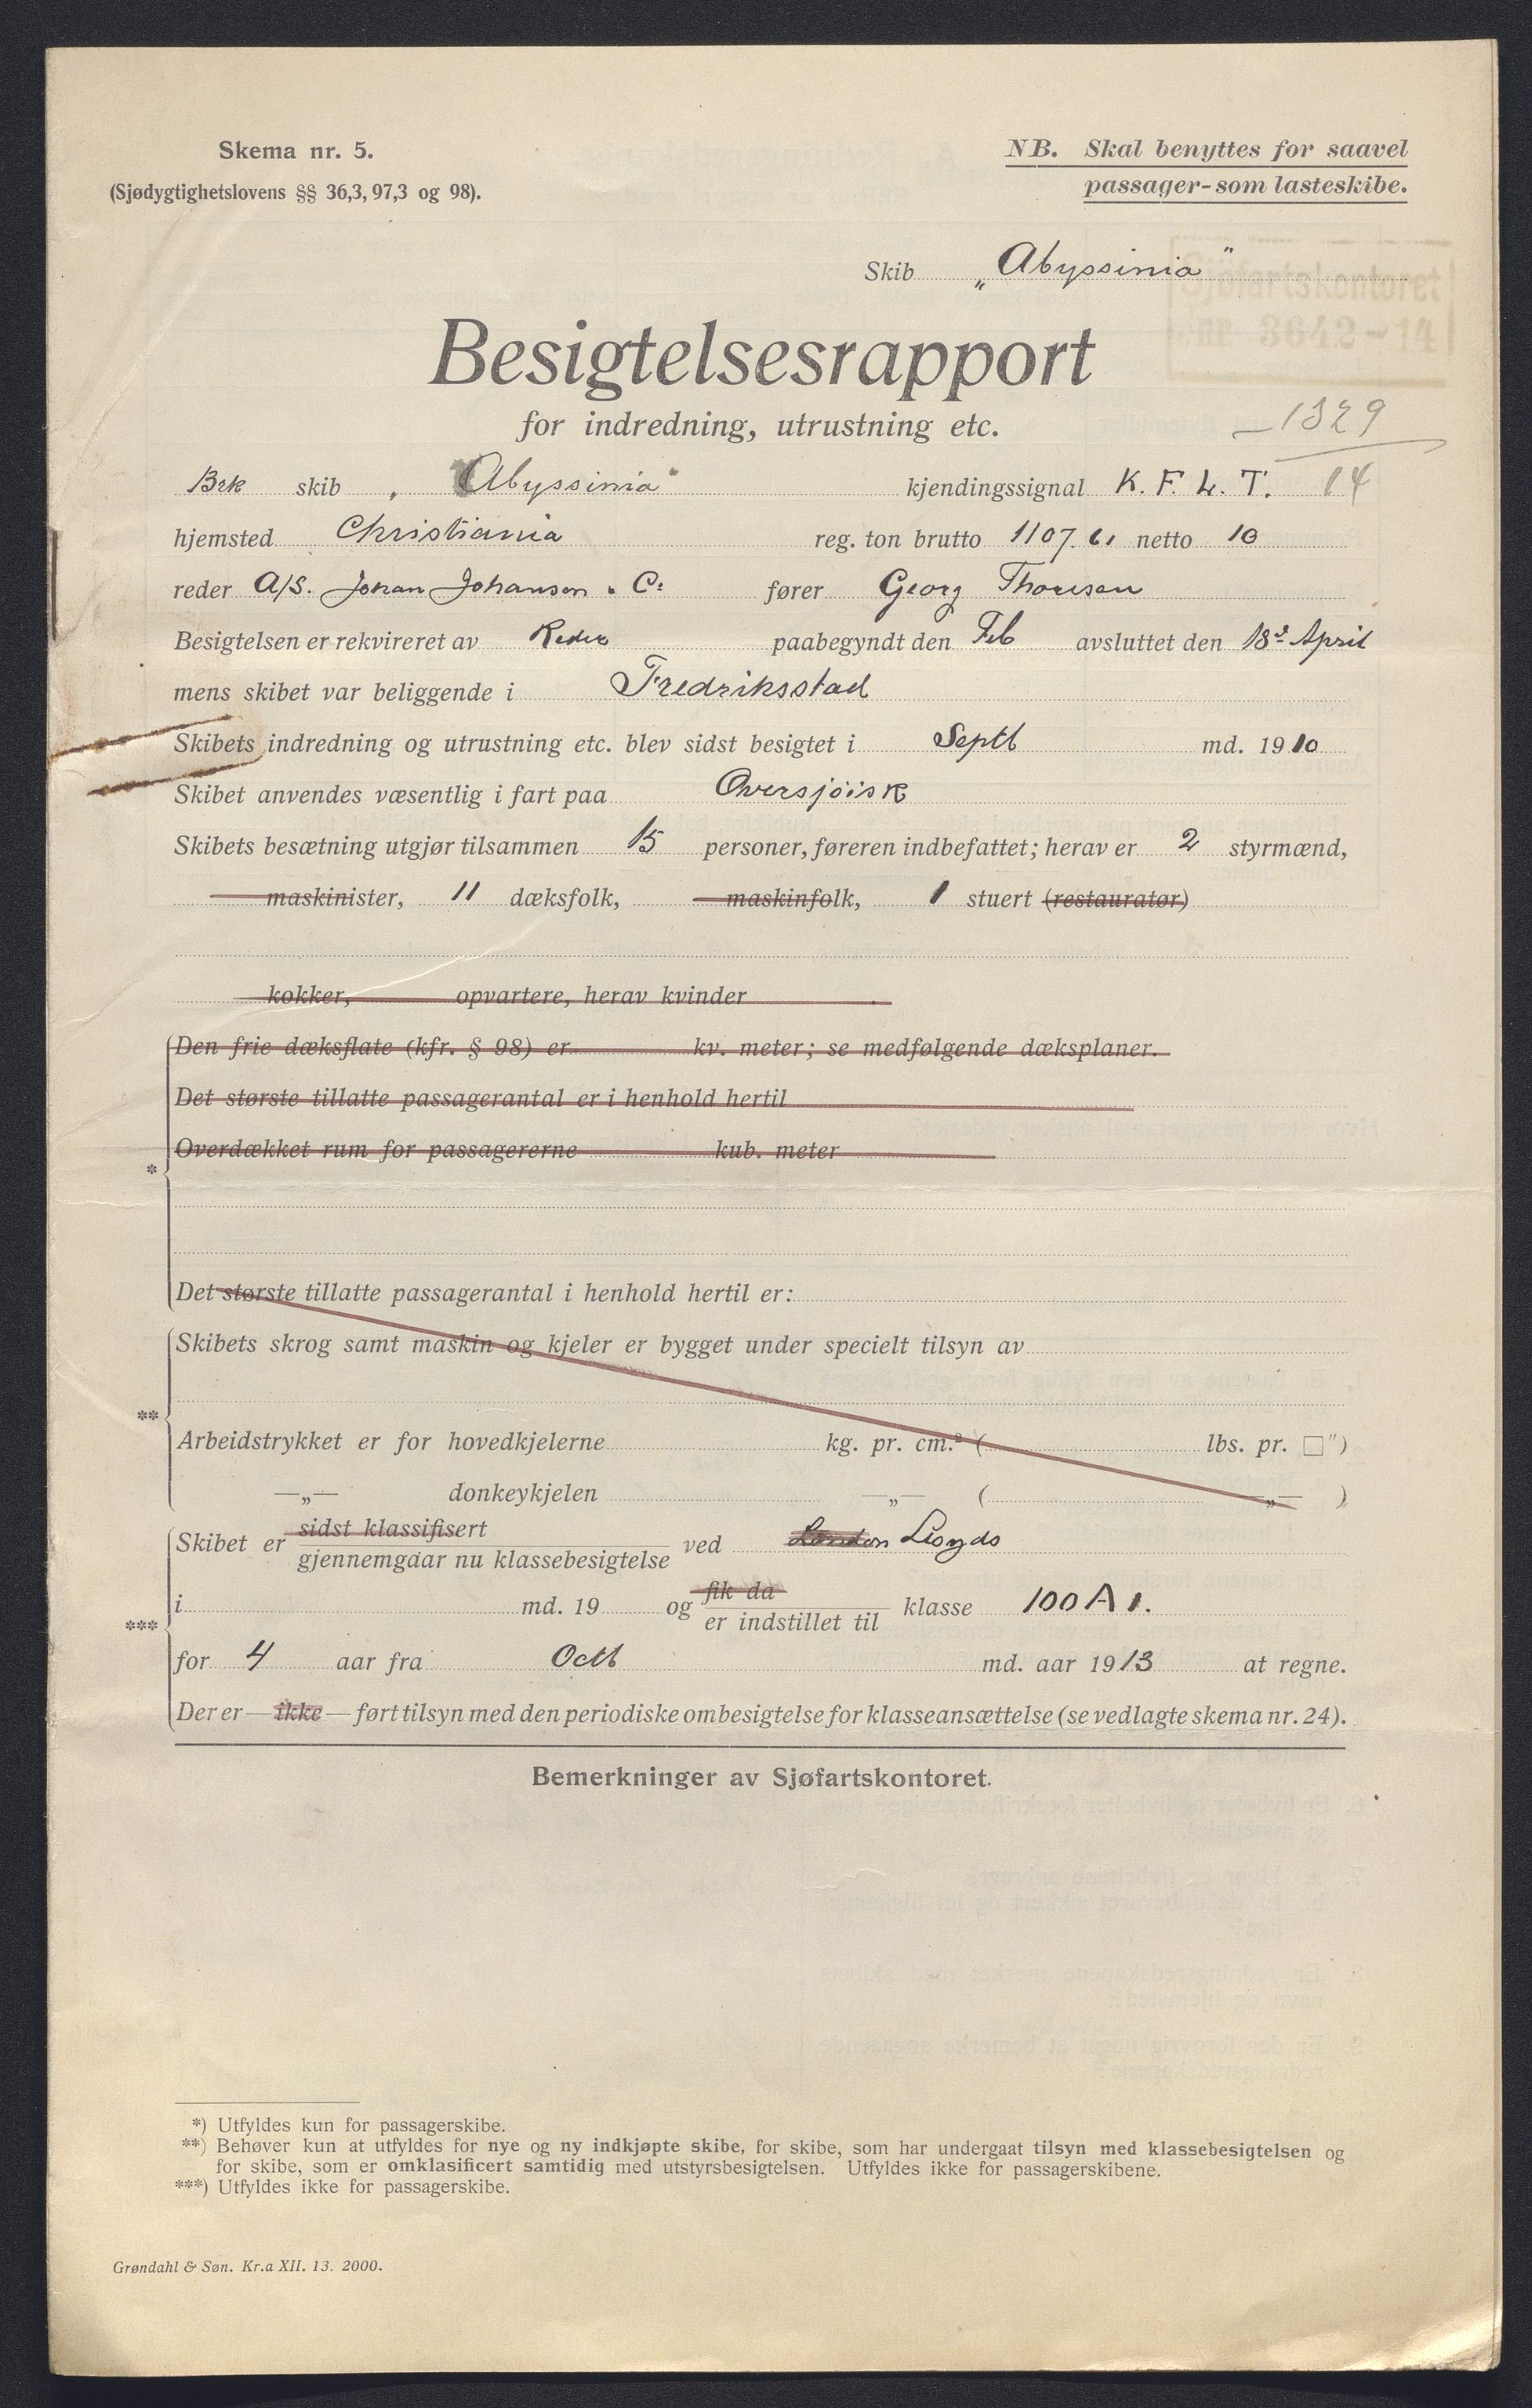 Skema nr. 5.
(Sjødygtighetslovens §§ 36,3, 97,3 og 98).
NB. Skal benyttes for saavel
passager-som lasteskibe.
Skib „Abyssinia"
Sjøfartskontoret
nr 3642-14
Besigtelsesrapport
for indredning, utrustning etc.
1329
14
Brk skib „Abyssinia" kjendingssignal K. F. L. T.
hjemsted Christiania reg. ton brutto 1107.61 netto 10
reder A/S. Johan Johanson & Co fører Georg Thoresen
Besigtelsen er rekvireret av Reder paabegyndt den Feb avsluttet den 18de April
mens skibet var beliggende i Fredriksstad
Skibets indredning og utrustning etc. blev sidst besigtet i Septb md. 1910
Skibet anvendes væsentlig i fart paa Oversjöisk
Skibets besætning utgjør tilsammen 15 personer, føreren indbefattet; herav er 2 styrmænd,
maskinister, 11 dæksfolk, maskinfolk, 1 stuert (restauratør)
kokker, opvartere, herav kvinder
Den frie dæksflate (kfr. § 98) er kv. meter; se medfølgende dæksplaner.
Det største tillatte passagerantal er i henhold hertil
Overdækket rum for passagererne kub. meter
*
Det største tillatte passagerantal i henhold hertil er:
Skibets skrog samt maskin og kjeler er bygget under specielt tilsyn av
**
Arbeidstrykket er for hovedkjelerne kg. pr. cm.² ( lbs. pr. □")
—„— donkeykjelen —„— ( —„— )
Skibet er sidst klassifisert
gjennemgaar nu klassebesigtelse ved London Lloyds
i md. 19 og fik da
er indstillet til klasse 100 A 1.
***
for 4 aar fra Octb md. aar 1913 at regne.
Der er — ikke — ført tilsyn med den periodiske ombesigtelse for klasseansættelse (se vedlagte skema nr. 24).
Bemerkninger av Sjøfartskontoret.
*) Utfyldes kun for passagerskibe.
**) Behøver kun at utfyldes for nye og ny indkjøpte skibe, for skibe, som har undergaat tilsyn med klassebesigtelsen og
for skibe, som er omklasificert samtidig med utstyrsbesigtelsen. Utfyldes ikke for passagerskibene.
***) Utfyldes ikke for passagerskibe.
Grøndahl & Søn. Kr.a XII. 13. 2000.